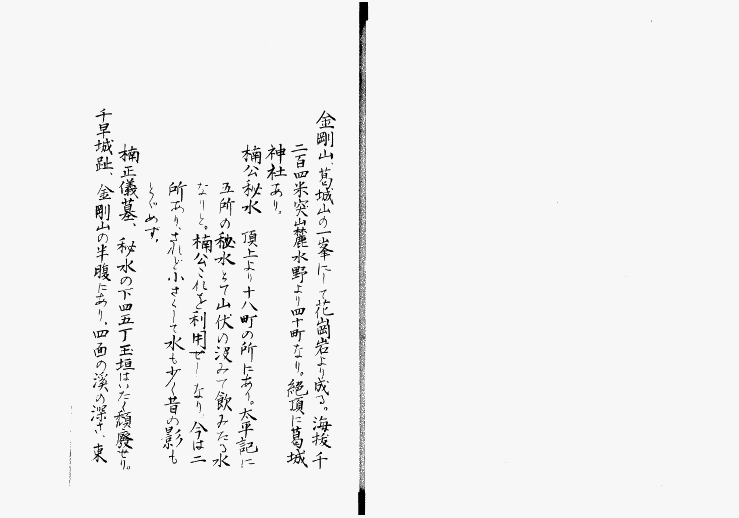 金剛山、葛城山の一峯にして花崗岩より成る。海抜千
二百四米突山麓水野より四十町なり。絶頂に葛城
神社あり。
楠公秘水　頂上より十八町の所にあり。太平記に
五所の秘水とて山伏の汲みて飲みたる水
なりと。楠公これを利用せしなり、今は二
所あり、されど小さくして水も少く昔の影も
とゞめず。
楠正儀墓、秘水の下四五丁玉垣はいたく頽廢せり。
千早城趾、金剛山の半腹にあり、四面の溪の深さ、東